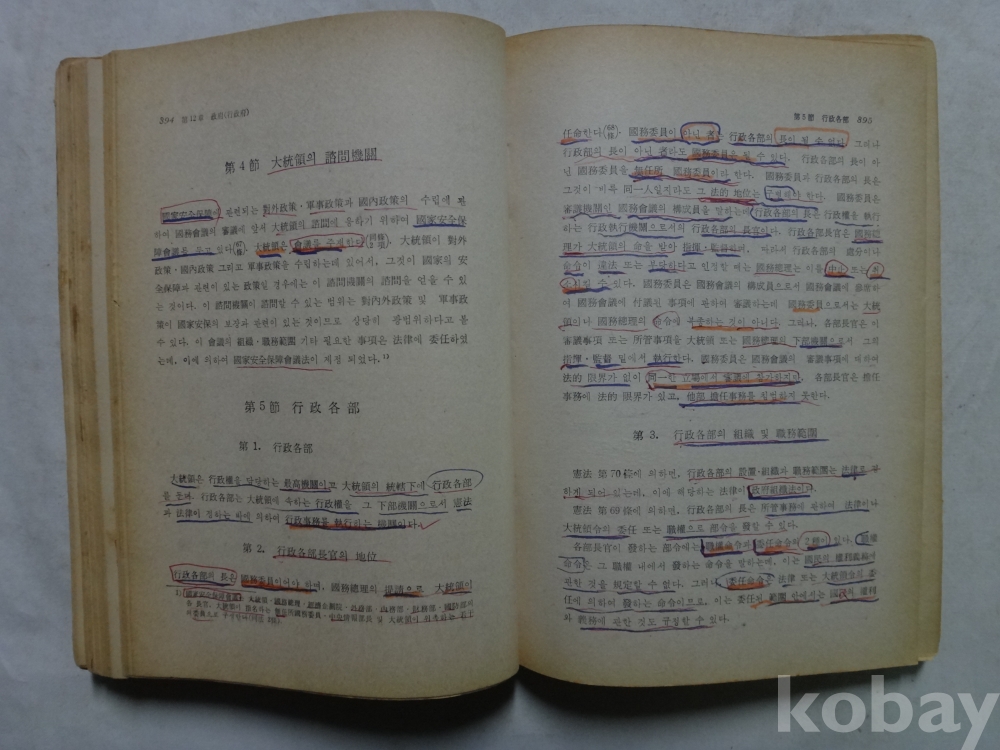 394 第12章 政府(行政府)
第4節 大統領의 諮問機關
國家安全保障에 관련되는 對外政策・軍事政策과 國內政策의 수립에 관
하여 國務會議의 審議에 앞서 大統領의 諮問에 응하기 위하여 國家安全保
障會議를 두고 있다(67條). 大統領은 會議를 主宰한다(同條 2項). 大統領이 對外
政策・國內政策 그리고 軍事政策을 수립하는데 있어서, 그것이 國家의 安
全保障과 관련이 있는 政策일 경우에는 이 諮問機關의 諮問을 얻을 수 있
는 것이다. 이 諮問機關에 諮問할 수 있는 범위는 對內外政策 및 軍事政
策이 國家安保의 보장과 관련이 있는 것이므로 상당히 광범위하다고 볼
수 있다. 이 會議의 組織・職務範圍 기타 필요한 事項은 法律에 委任하였
는데, 이에 의하여 國家安全保障會議法이 제정 되었다.
第5節 行政各部
第1. 行政各部
大統領은 行政權을 담당하는 最高機關이고 大統領의 統轄下에 行政各部
를 둔다. 行政各部는 大統領에 속하는 行政權을 그 下部機關으로서 憲法
과 法律이 정하는 바에 의하여 行政事務를 執行하는 機關이다.
第2. 行政各部長官의 地位
行政各部의 長은 國務委員이어야 하며, 國務總理의 提請으로 大統領이
1) 國家安全保障會議는 大統領, 國務總理, 經濟企劃院・外務部・內務部・財務部・國防部의
第5節 行政各部 395
任命한다(68條). 國務委員이 아닌 者는 行政各部의 長이 될 수 없다. 그러나
行政部의 長이 아닌 者라도 國務委員은 될 수 있다. 行政各部의 長이 아
닌 國務委員을 無任所 國務委員이라 한다. 國務委員과 行政各部의 長은
그것이 비록 同一人일지라도 그 法的 地位는 구별해야 한다. 國務委員은
審議機關인 國務會議의 構成員을 말하는데 行政各部의 長은 行政權을 執行
하는 行政執行機關으로서의 行政各部의 長官이다. 行政各部長官은 國務總
理가 大統領의 命을 받아 指揮・監督하며, 따라서 行政各部의 處分이나
命令이 違法 또는 부당하다고 인정할 때는 國務總理는 이를 中止 또는 취
소시킬 수 있다. 國務委員은 國務會議의 構成員으로서 國務會議에 參席하
여 國務會議에 付議된 事項에 관하여 審議하는데 國務委員으로서는 大統
領이나 國務總理의 命令에 복종하는 것이 아니다. 그러나, 各部長官은 이
審議事項 또는 所管事項을 大統領 또는 國務總理의 下部機關으로서 그의
指揮・監督 밑에서 執行한다. 國務委員은 國務會議의 審議事項에 대하여
法的 限界가 없이 同一한 立場에서 審議에 참가하지만, 各部長官은 擔任
事務에 法的 限界가 있고, 他部 擔任事務를 침범하지 못한다.
第3. 行政各部의 組織 및 職務範圍
憲法 第70條에 의하면, 行政各部의 設置・組織과 職務範圍는 法律로 정
한게 되어 있는데, 이에 해당하는 法律이 政府組織法이다.
憲法 第69條에 의하면, 行政各部의 長은 所管事務에 관하여 法律이나
大統領令의 委任 또는 職權으로 部令을 發할 수 있다.
各部長官이 發하는 部令에는 職權命令과 委任命令의 2種이 있다. 職權
命令은 그 職權 내에서 發하는 命令을 말하는데, 이는 國民의 權利義務에
관한 것을 規定할 수 없다. 그러나 委任命令은 法律 또는 大統領令의 委
任에 의하여 發하는 命令이므로, 이는 委任된 範圍 안에서는 國民의 權利
와 義務에 관한 것도 규정할 수 있다.
kobay